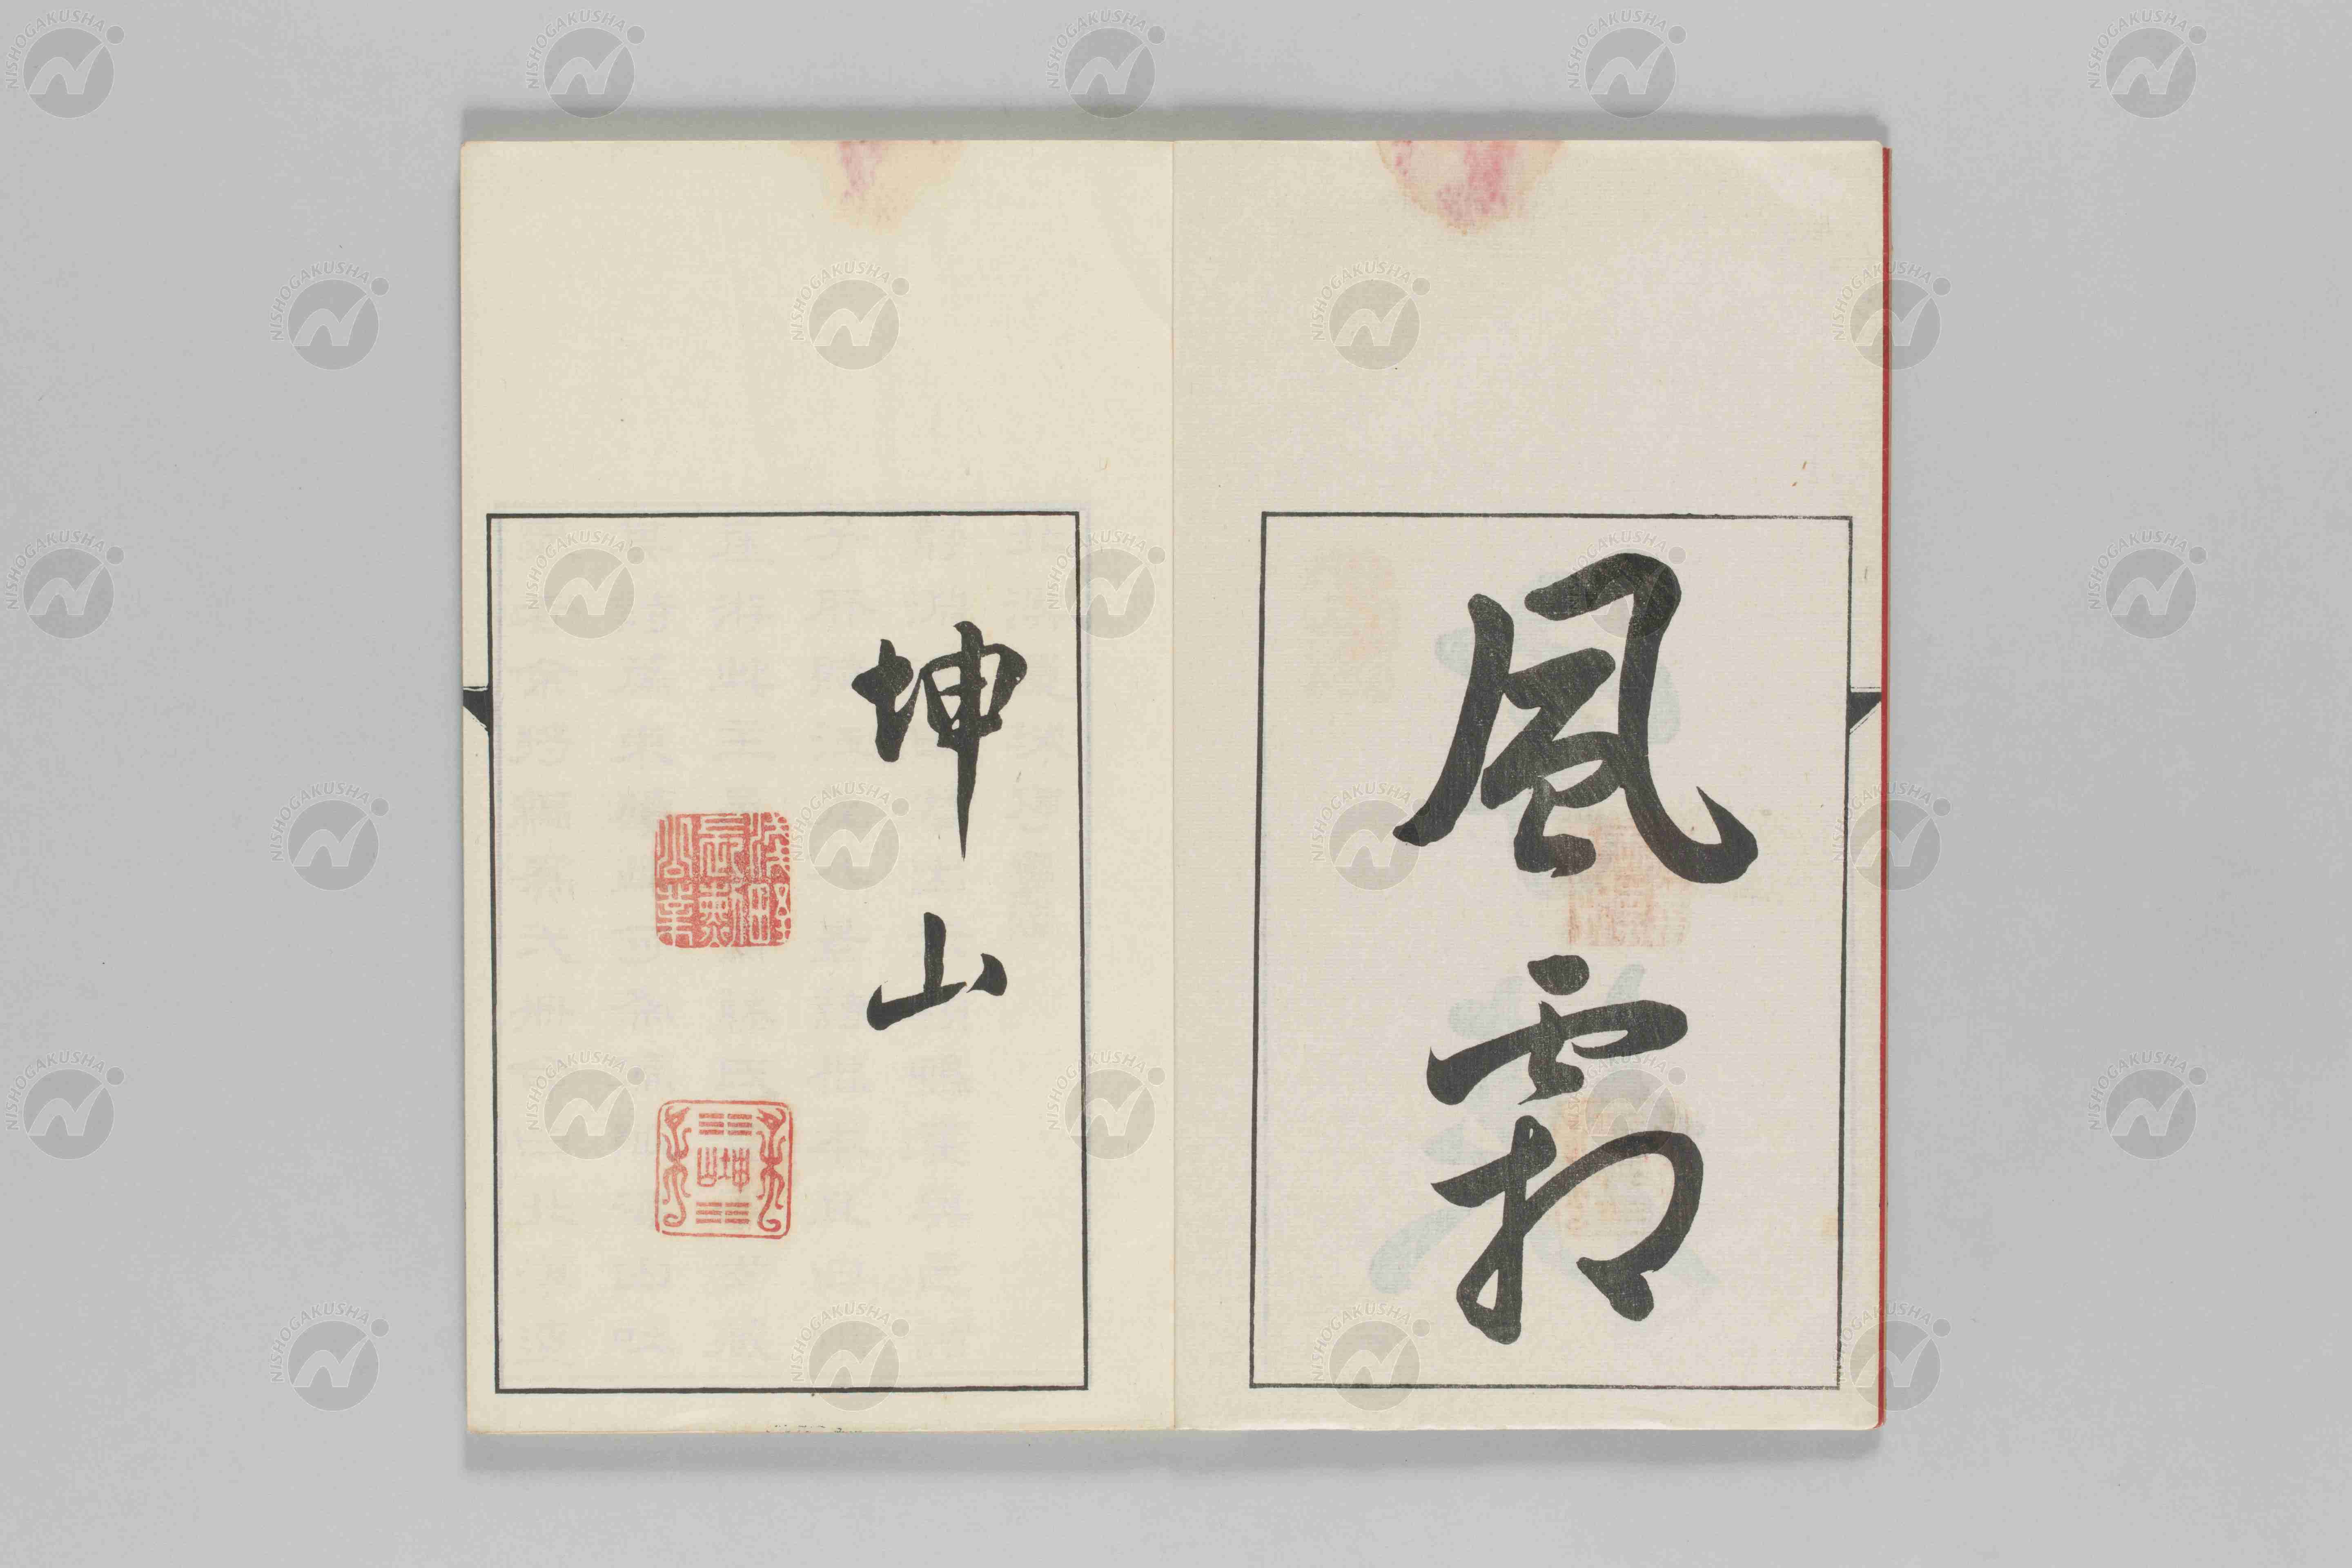 風霜
坤山
坤山
NISHOGAKUSHA